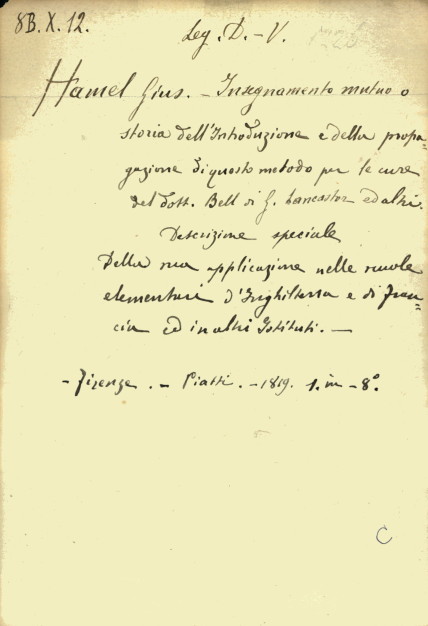 8B. X. 12.
Leg. D. - V.
Hamel Gius. - Insegnamento mutuo o
storia dell'Introduzione e della propa-
gazione di questo metodo per le cure
del Dott. Bell di G. Lancaster ed altri.
Descrizione speciale
Della sua applicazione nelle scuole
elementari d'Inghilterra e di Fran-
cia ed in altri Istituti. -
- Firenze. - Piatti. - 1819. 1. in - 8º.
C